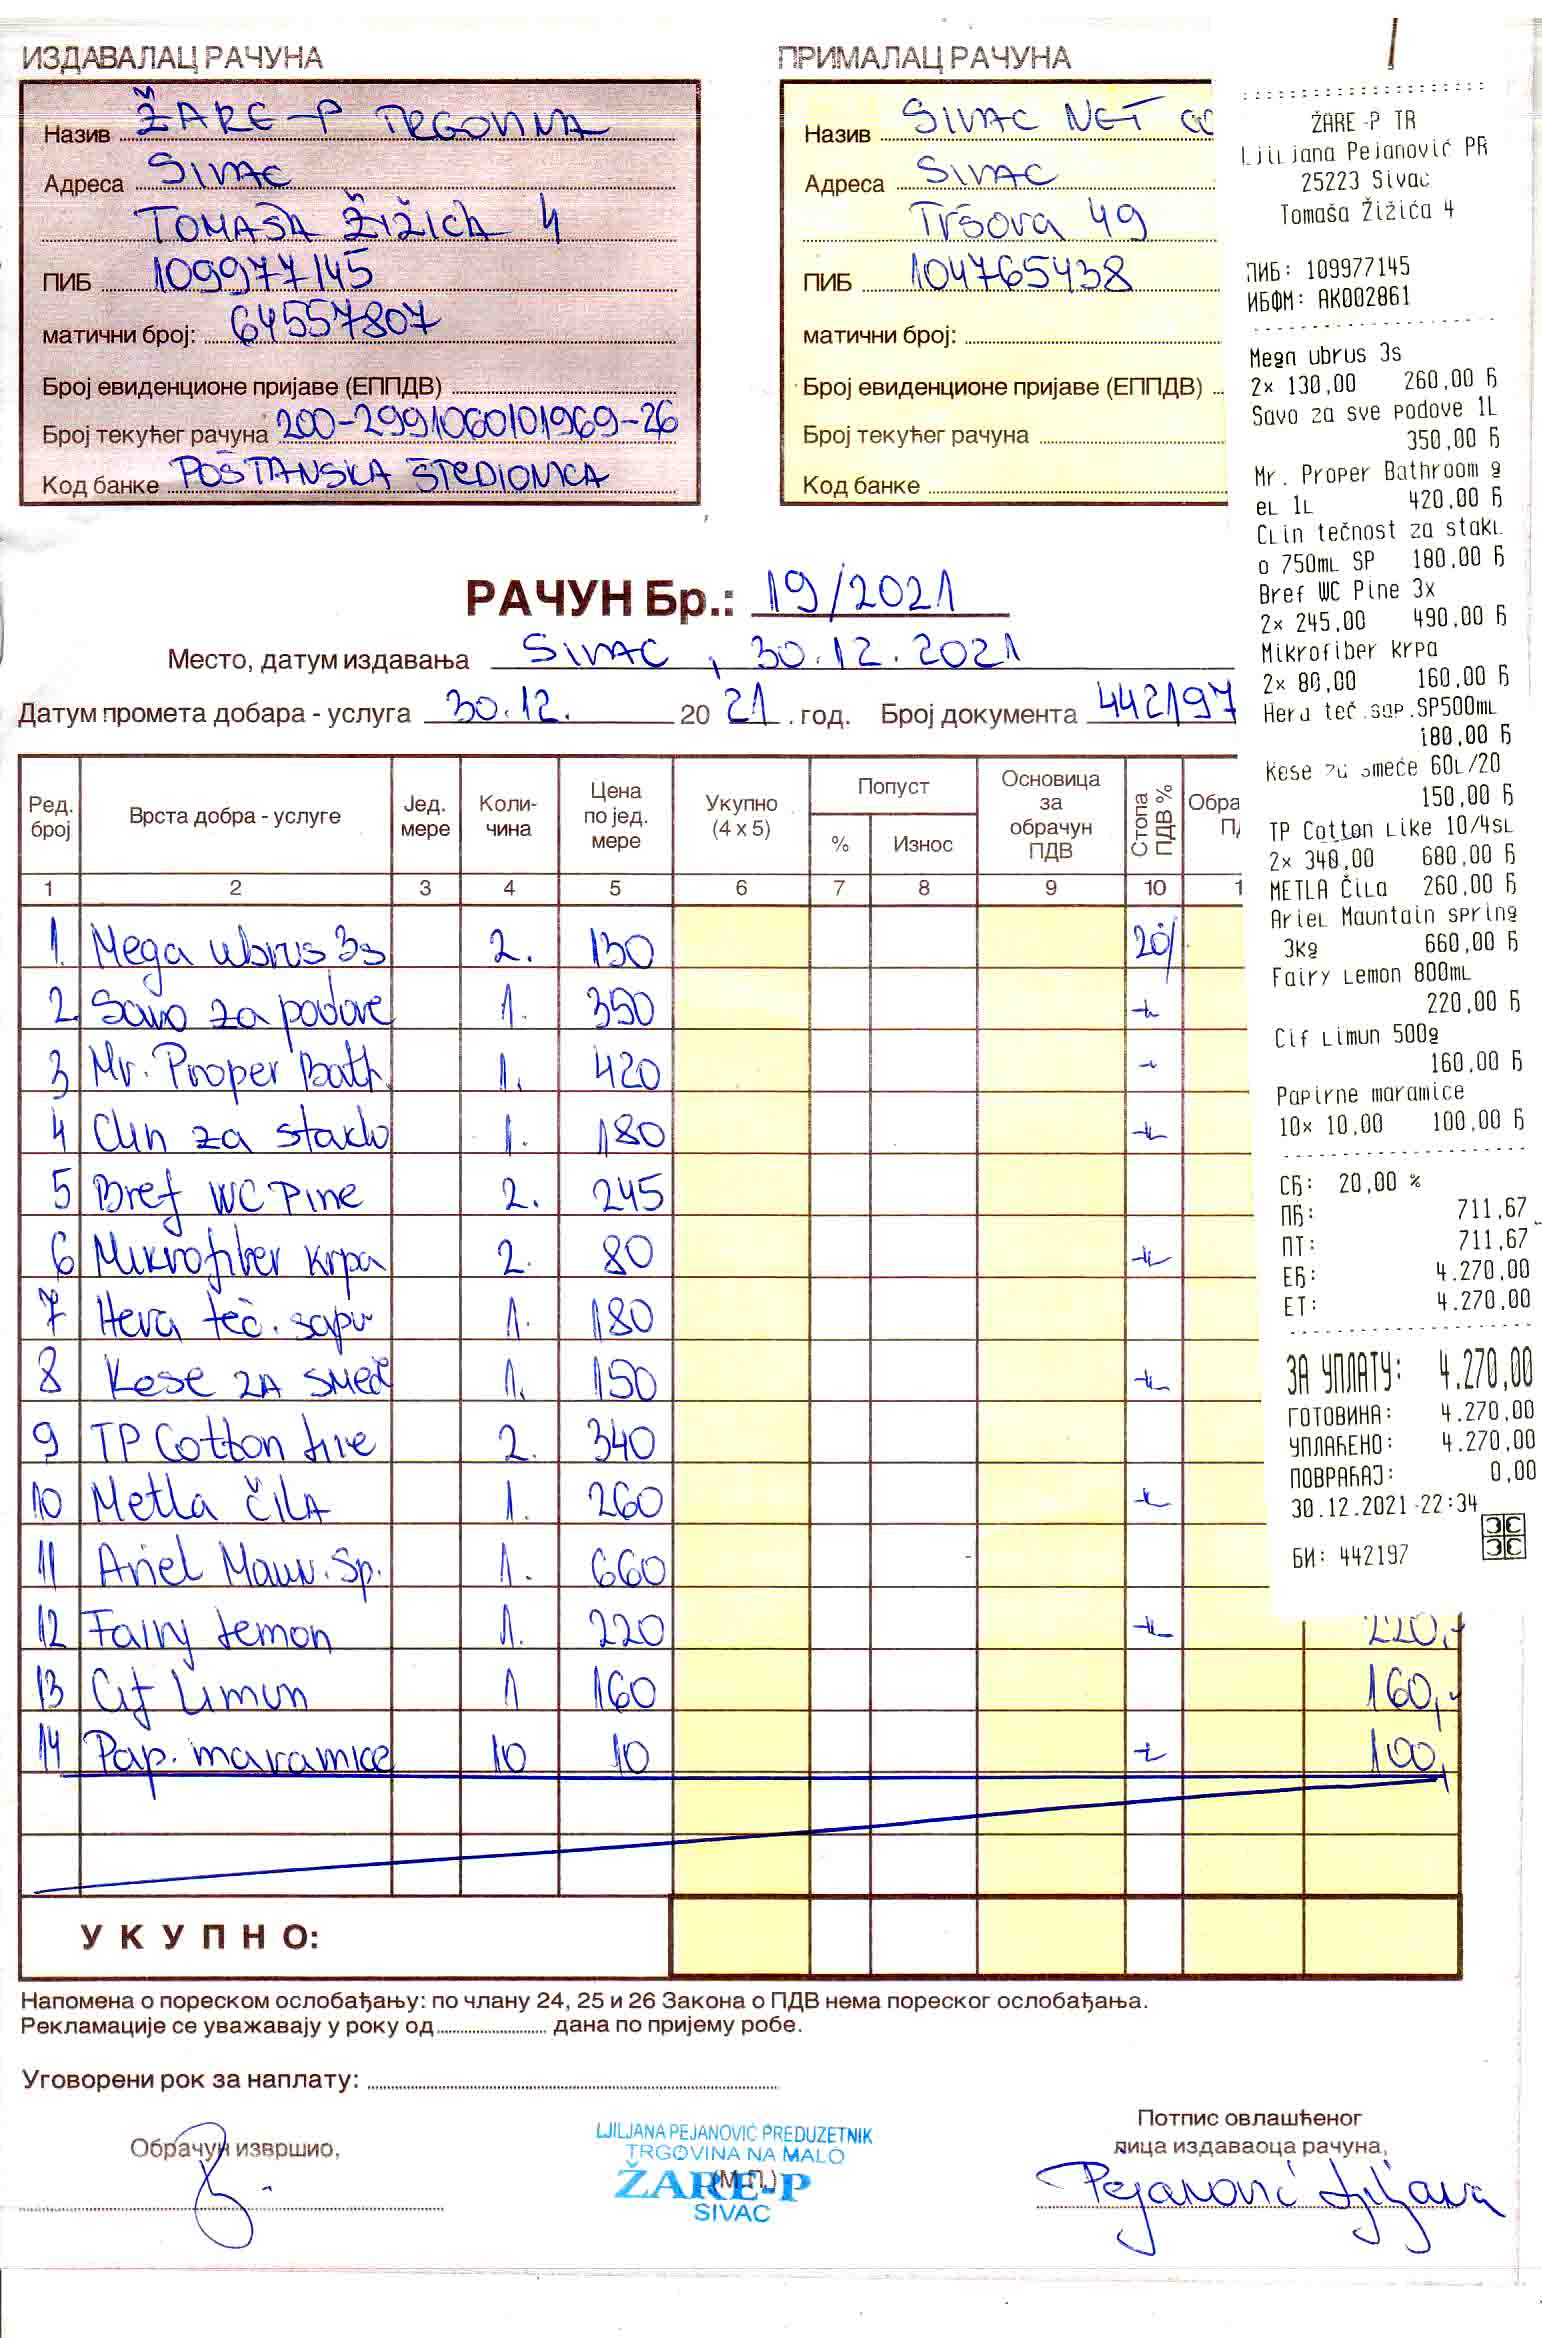 ИЗДАВАЛАЦ РАЧУНА
Назив ŽARE-P TRGOVINA
Адреса SIVAC
TOMAŠA ŽIŽIĆA 4
ПИБ 109977145
матични број: 64557807
Број евиденционе пријаве (ЕППДВ)
Број текућег рачуна 200-2991060101969-26
Код банке POŠTANSKA ŠTEDIONICA
ПРИМАЛАЦ РАЧУНА
Назив SIVAC NET
Адреса SIVAC
Tršova 49
ПИБ 104765438
матични број:
Број евиденционе пријаве (ЕППДВ)
Број текућег рачуна
Код банке
РАЧУН Бр.: 19/2021
Место, датум издавања SIVAC, 30.12.2021
Датум промета добара - услуга 30.12. 20 21 . год. Број документа 442197
Ред. број Врста добра - услуге Јед. мере Коли-чина Цена по јед. мере Укупно (4 x 5) Попуст % Износ Основица за обрачун ПДВ Стопа ПДВ %
1 2 3 4 5 6 7 8 9 10
1. Mega ubrus 3s 2. 130 20%
2. Savo za podove 1. 350
3 Mr. Proper Bath. 1. 420
4 Clin za staklo 1. 180
5 Bref WC Pine 2. 245
6 Mikrofiber krpa 2. 80
7 Hera teč. sapu 1. 180
8 Kese ZA SMEĆ 1. 150
9 TP Cotton like 2. 340
10 Metla ČILA 1. 260
11 Ariel Maun. Sp. 1. 660
12 Fairy Lemon 1. 220 220,-
13 Cif Limun 1 160 160,-
14 Pap. maramice 10 10 100,
УКУПНО:
Напомена о пореском ослобађању: по члану 24, 25 и 26 Закона о ПДВ нема пореског ослобађања.
Рекламације се уважавају у року од dана по пријему робе.
Уговорени рок за наплату:
Обрачун извршио,
LJILJANA PEJANOVIĆ PREDUZETNIK
TRGOVINA NA MALO
ŽARE-P
(М.П.)
SIVAC
Потпис овлашћеног
лица издаваоца рачуна,
Pejanović Ljiljana
ŽARE-P TR
Ljiljana Pejanović PR
25223 Sivac
Tomaša Žižića 4
ПИБ: 109977145
ИБФМ: AK002861
Mega ubrus 3s
2x 130,00 260,00 Ђ
Savo za sve podove 1L
350,00 Ђ
Mr. Proper Bathroom g
el 1L 420,00 Ђ
Clin tečnost za stakl
o 750mL SP 180,00 Ђ
Bref WC Pine 3x
2x 245,00 490,00 Ђ
Mikrofiber krpa
2x 80,00 160,00 Ђ
Hera teč.sap.SP500mL
180,00 Ђ
Kese za smeće 60L/20
150,00 Ђ
TP Cotton Like 10/4sL
2x 340,00 680,00 Ђ
METLA ČiLa 260,00 Ђ
Ariel Mauntain spring
3kg 660,00 Ђ
Fairy Lemon 800mL
220,00 Ђ
Cif Limun 500g
160,00 Ђ
Papirne maramice
10x 10,00 100,00 Ђ
СЂ: 20,00 %
ПЂ: 711,67
ПТ: 711,67
ЕЂ: 4.270,00
ЕТ: 4.270,00
ЗА УПЛАТУ: 4.270,00
ГОТОВИНА: 4.270,00
УПЛАЋЕНО: 4.270,00
ПОВРАЋАЈ: 0,00
30.12.2021 22:34
БИ: 442197